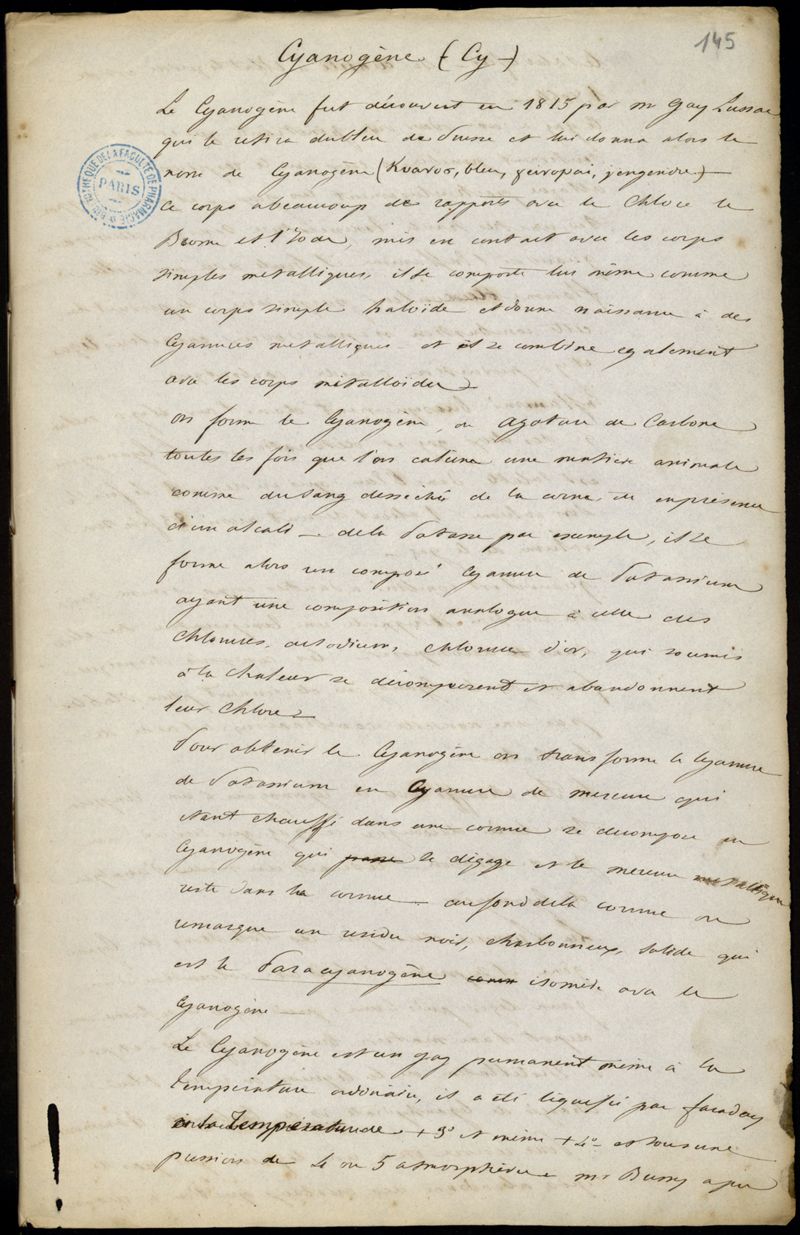 145
Cyanogène (Cy-)
Le Cyanogène fut découvert en 1815 par mr Gay Lussac
qui le retira du bleu de Prusse et lui donna alors le
nom de Cyanogène (Κυανοσ, bleu, γειναω, j'engendre) —
Ce corps a beaucoup de rapports avec le Chlore le
Brome et l'Iode, mis en contact avec les corps
simples métalliques, il se comporte lui même comme
un corps simple haloïde et donne naissance à des
Cyanures métalliques et il se combine également
avec les corps métalloïdes
on forme le Cyanogène, ou azoture de Carbone
toutes les fois que l'on calcine une matière animale
comme du sang desséché de la corne, en présence
d'un alcali — de la Potasse par exemple, il se
forme alors un composé Cyanure de Potassium
ayant une composition analogue à celle des
Chlorures, de sodium, chlorure d'or, qui soumis
à la chaleur se décomposent et abandonnent
leur Chlore
Pour obtenir le Cyanogène on transforme le Cyanure
de Potassium en Cyanure de mercure qui
étant chauffé dans une cornue se décompose en
Cyanogène qui passe se dégage et le mercure métallique
reste dans la cornue — au fond de la cornue on
remarque un résidu noir, charbonneux, solide qui
est le Paracyanogène isomère avec le
Cyanogène —
Le Cyanogène est un gaz permanent même à la
température ordinaire, il a été liquéfié par faraday
à la Température de + 3° et même + 4° et sous une
pression de 4 ou 5 atmosphères mr Bussy a pu
BIBLIOTHÈQUE DE LA FACULTÉ DE PHARMACIE
PARIS